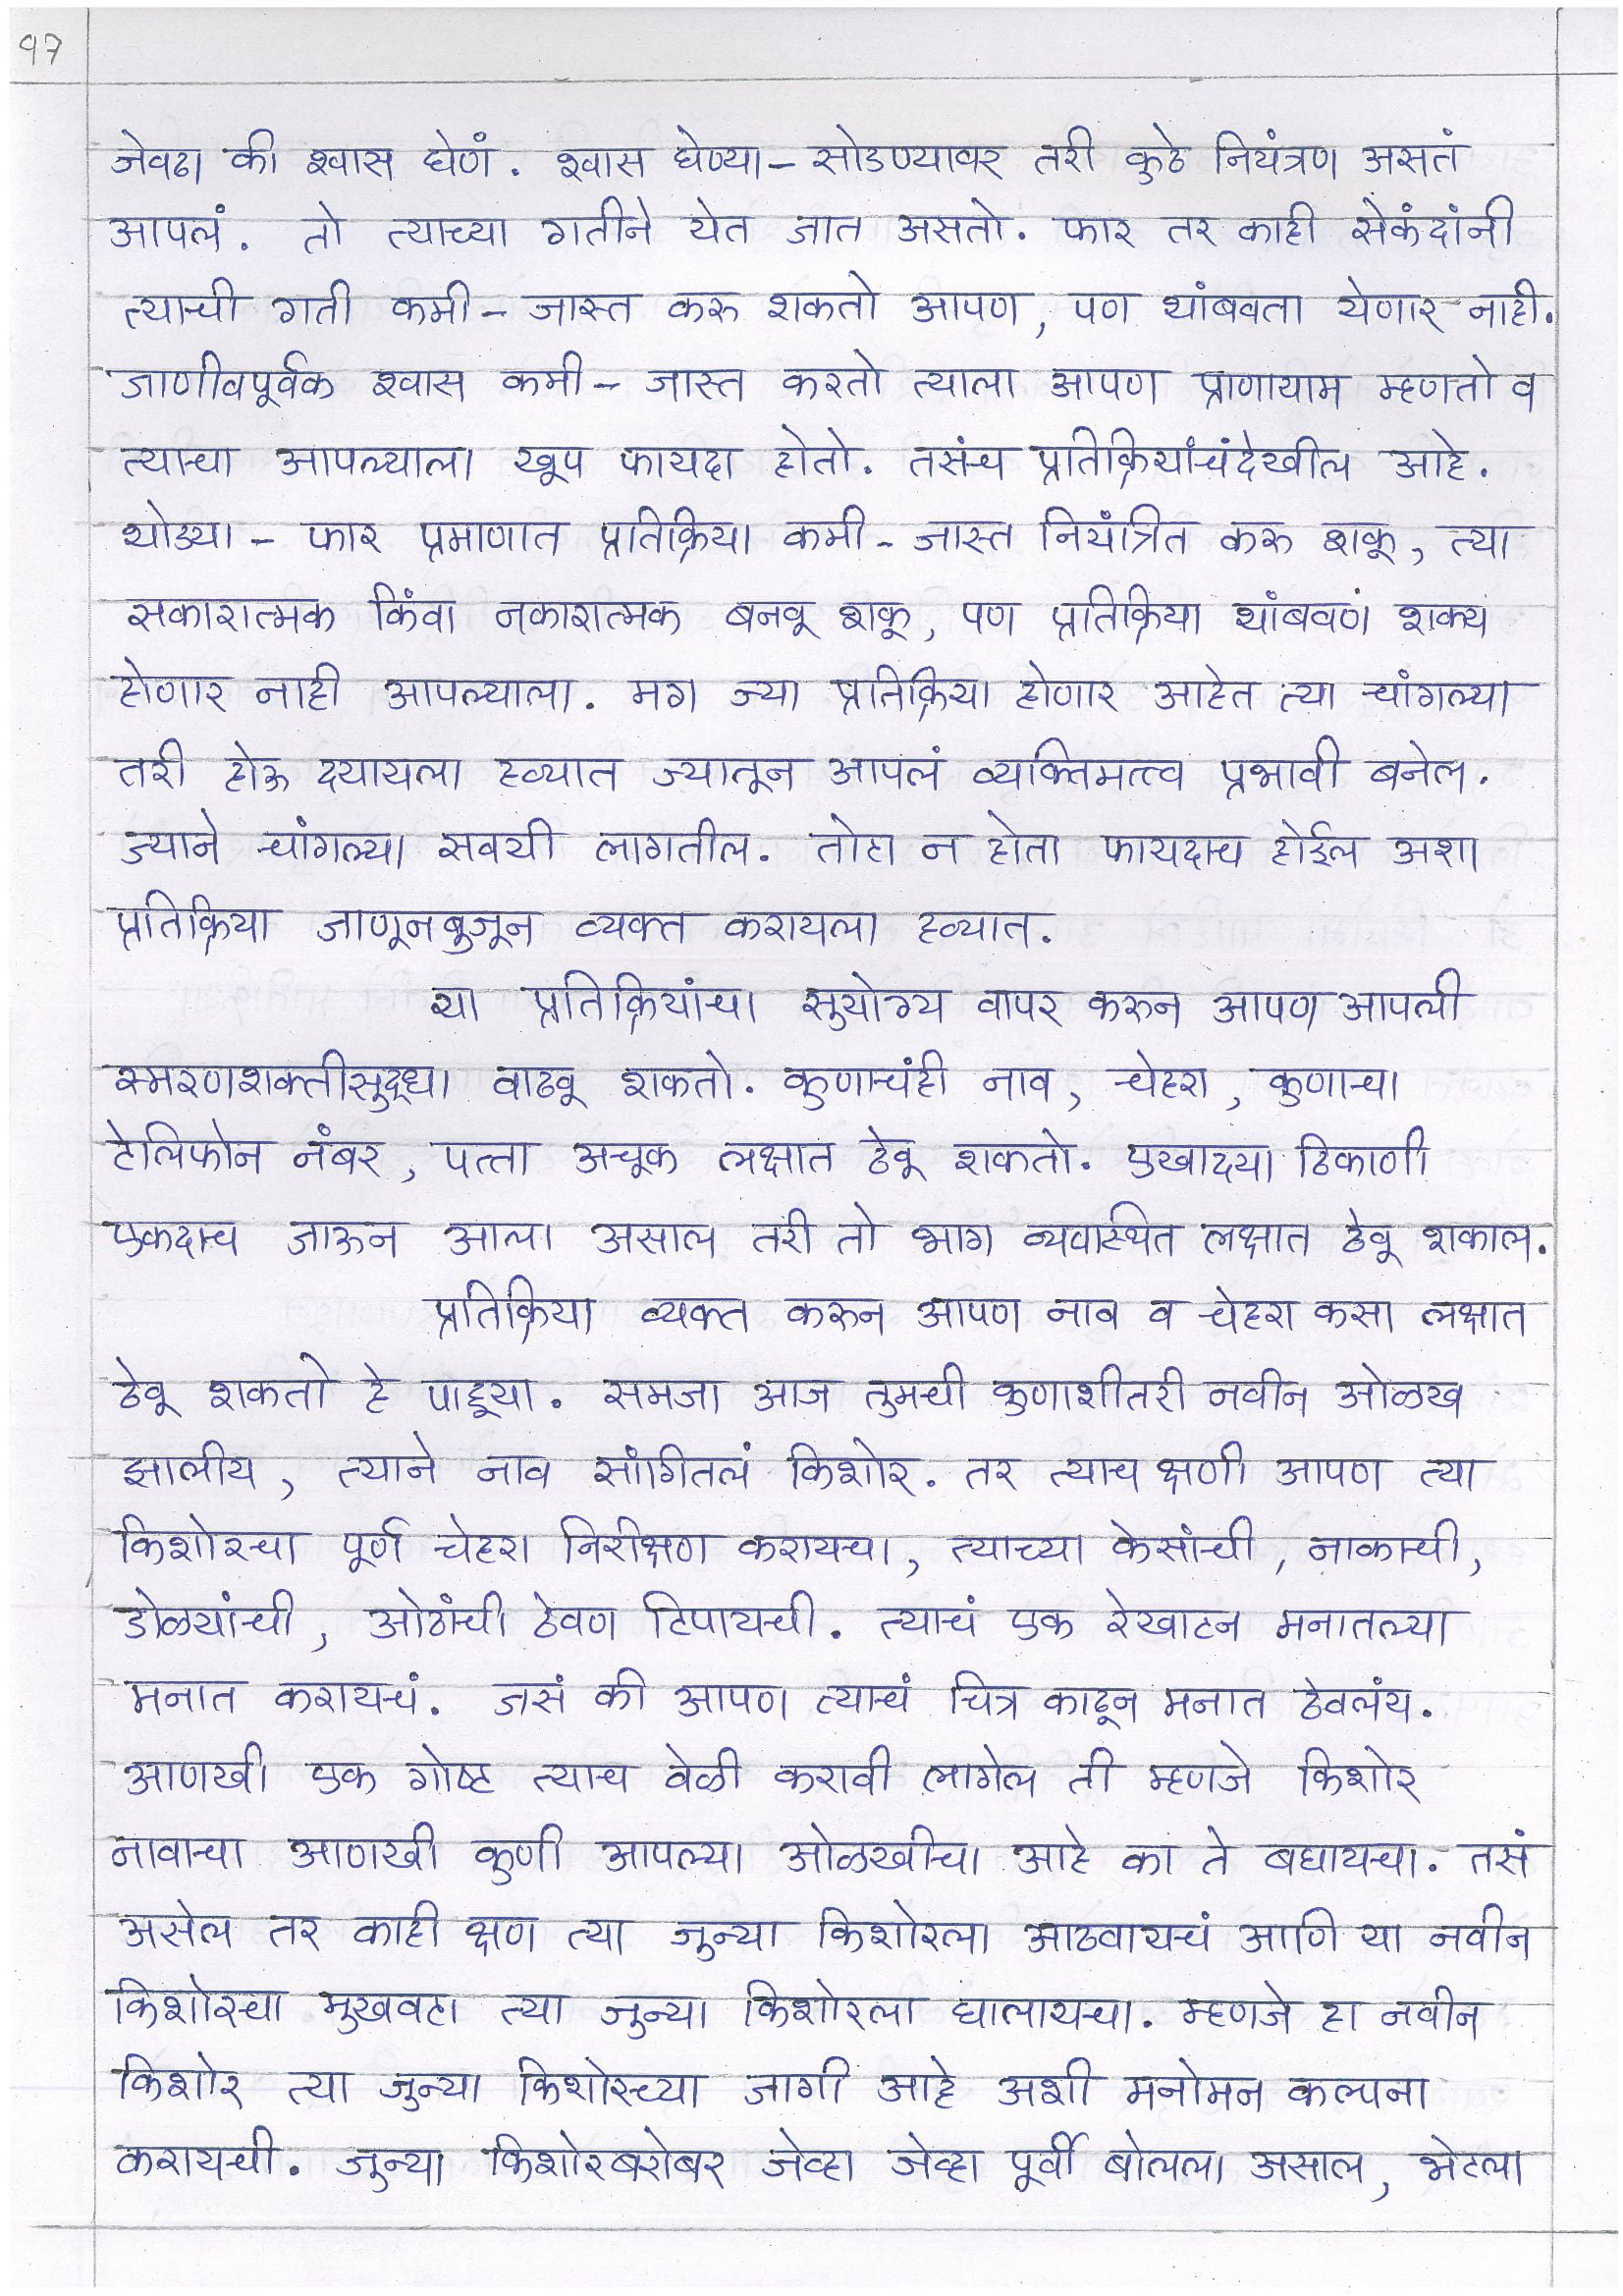 १७
जेवढा की श्वास घेणं. श्वास घेण्या - सोडण्यावर तरी कुठे नियंत्रण असतं
आपलं. तो त्याच्या गतीने येत जात असतो. फार तर काही सेकंदांनी
त्याची गती कमी - जास्त करू शकतो आपण, पण थांबवता येणार नाही.
जाणीवपूर्वक श्वास कमी - जास्त करतो त्याला आपण प्राणायाम म्हणतो व
त्याचा आपल्याला खूप फायदा होतो. तसंच प्रतिक्रियांचंदेखील आहे.
थोड्या - फार प्रमाणात प्रतिक्रिया कमी - जास्त नियंत्रित करू शकू, त्या
सकारात्मक किंवा नकारात्मक बनवू शकू, पण प्रतिक्रिया थांबवणं शक्य
होणार नाही आपल्याला. मग ज्या प्रतिक्रिया होणार आहेत त्या चांगल्या
तरी होऊ द्यायला हव्यात ज्यातून आपलं व्यक्तिमत्त्व प्रभावी बनेल.
ज्याने चांगल्या सवयी लागतील. तोटा न होता फायदाच होईल अशा
प्रतिक्रिया जाणूनबुजून व्यक्त करायला हव्यात.
या प्रतिक्रियांचा सुयोग्य वापर करून आपण आपली
स्मरणशक्तीसुद्धा वाढवू शकतो. कुणाचंही नाव, चेहरा, कुणाचा
टेलिफोन नंबर, पत्ता अचूक लक्षात ठेवू शकतो. एखाद्या ठिकाणी
एकदाच जाऊन आला असाल तरी तो भाग व्यवस्थित लक्षात ठेवू शकाल.
प्रतिक्रिया व्यक्त करून आपण नाव व चेहरा कसा लक्षात
ठेवू शकतो हे पाहूया. समजा आज तुमची कुणाशीतरी नवीन ओळख
झालीय, त्याने नाव सांगितलं किशोर. तर त्याच क्षणी आपण त्या
किशोरचा पूर्ण चेहरा निरीक्षण करायचा, त्याच्या केसांची, नाकाची,
डोळयांची, ओठांची ठेवण टिपायची. त्याचं एक रेखाटन मनातल्या
मनात करायचं. जसं की आपण त्याचं चित्र काढून मनात ठेवलंय.
आणखी एक गोष्ट त्याच वेळी करावी लागेल ती म्हणजे किशोर
नावाचा आणखी कुणी आपल्या ओळखीचा आहे का ते बघायचा. तसं
असेल तर काही क्षण त्या जुन्या किशोरला आठवायचं आणि या नवीन
किशोरचा मुखवटा त्या जुन्या किशोरला घालायचा. म्हणजे हा नवीन
किशोर त्या जुन्या किशोरच्या जागी आहे अशी मनोमन कल्पना
करायची. जुन्या किशोरबरोबर जेव्हा जेव्हा पूर्वी बोलला असाल, भेटला